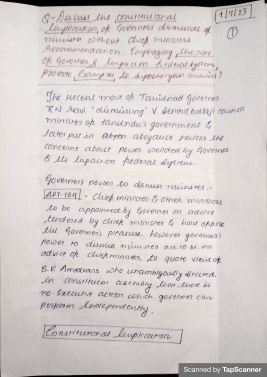 1/7/23
①
Q- Discuss the constitutional
implication, of Governors dismissal of
minister without chief ministers
Recommendation. Emphasizing the role
of Governor & impact on federal system,
provide Examples to support your answers?
The recent move of Tamilnad Governor
R N Ravi "dismissing" V Senthil balaji council
minister of tamilnadu's government &
later put in abeyance raises the
concerns about power wielded by Governor
& its impact on federal system.
Governors power to dismiss ministers:-
ART-164 - chief minister & other ministers
to be appointed by Governor on advice
tendered by chief minister & hold office
till Governor's pleasure. however governor's
power to dismiss ministers is on
advice of chief minister to quote views of
B.R Ambedkar who unambiguously stated
in constituent assembly that there is
no Executive action which governor can
perform independently.
Constitutional Implication
Scanned by TapScanner